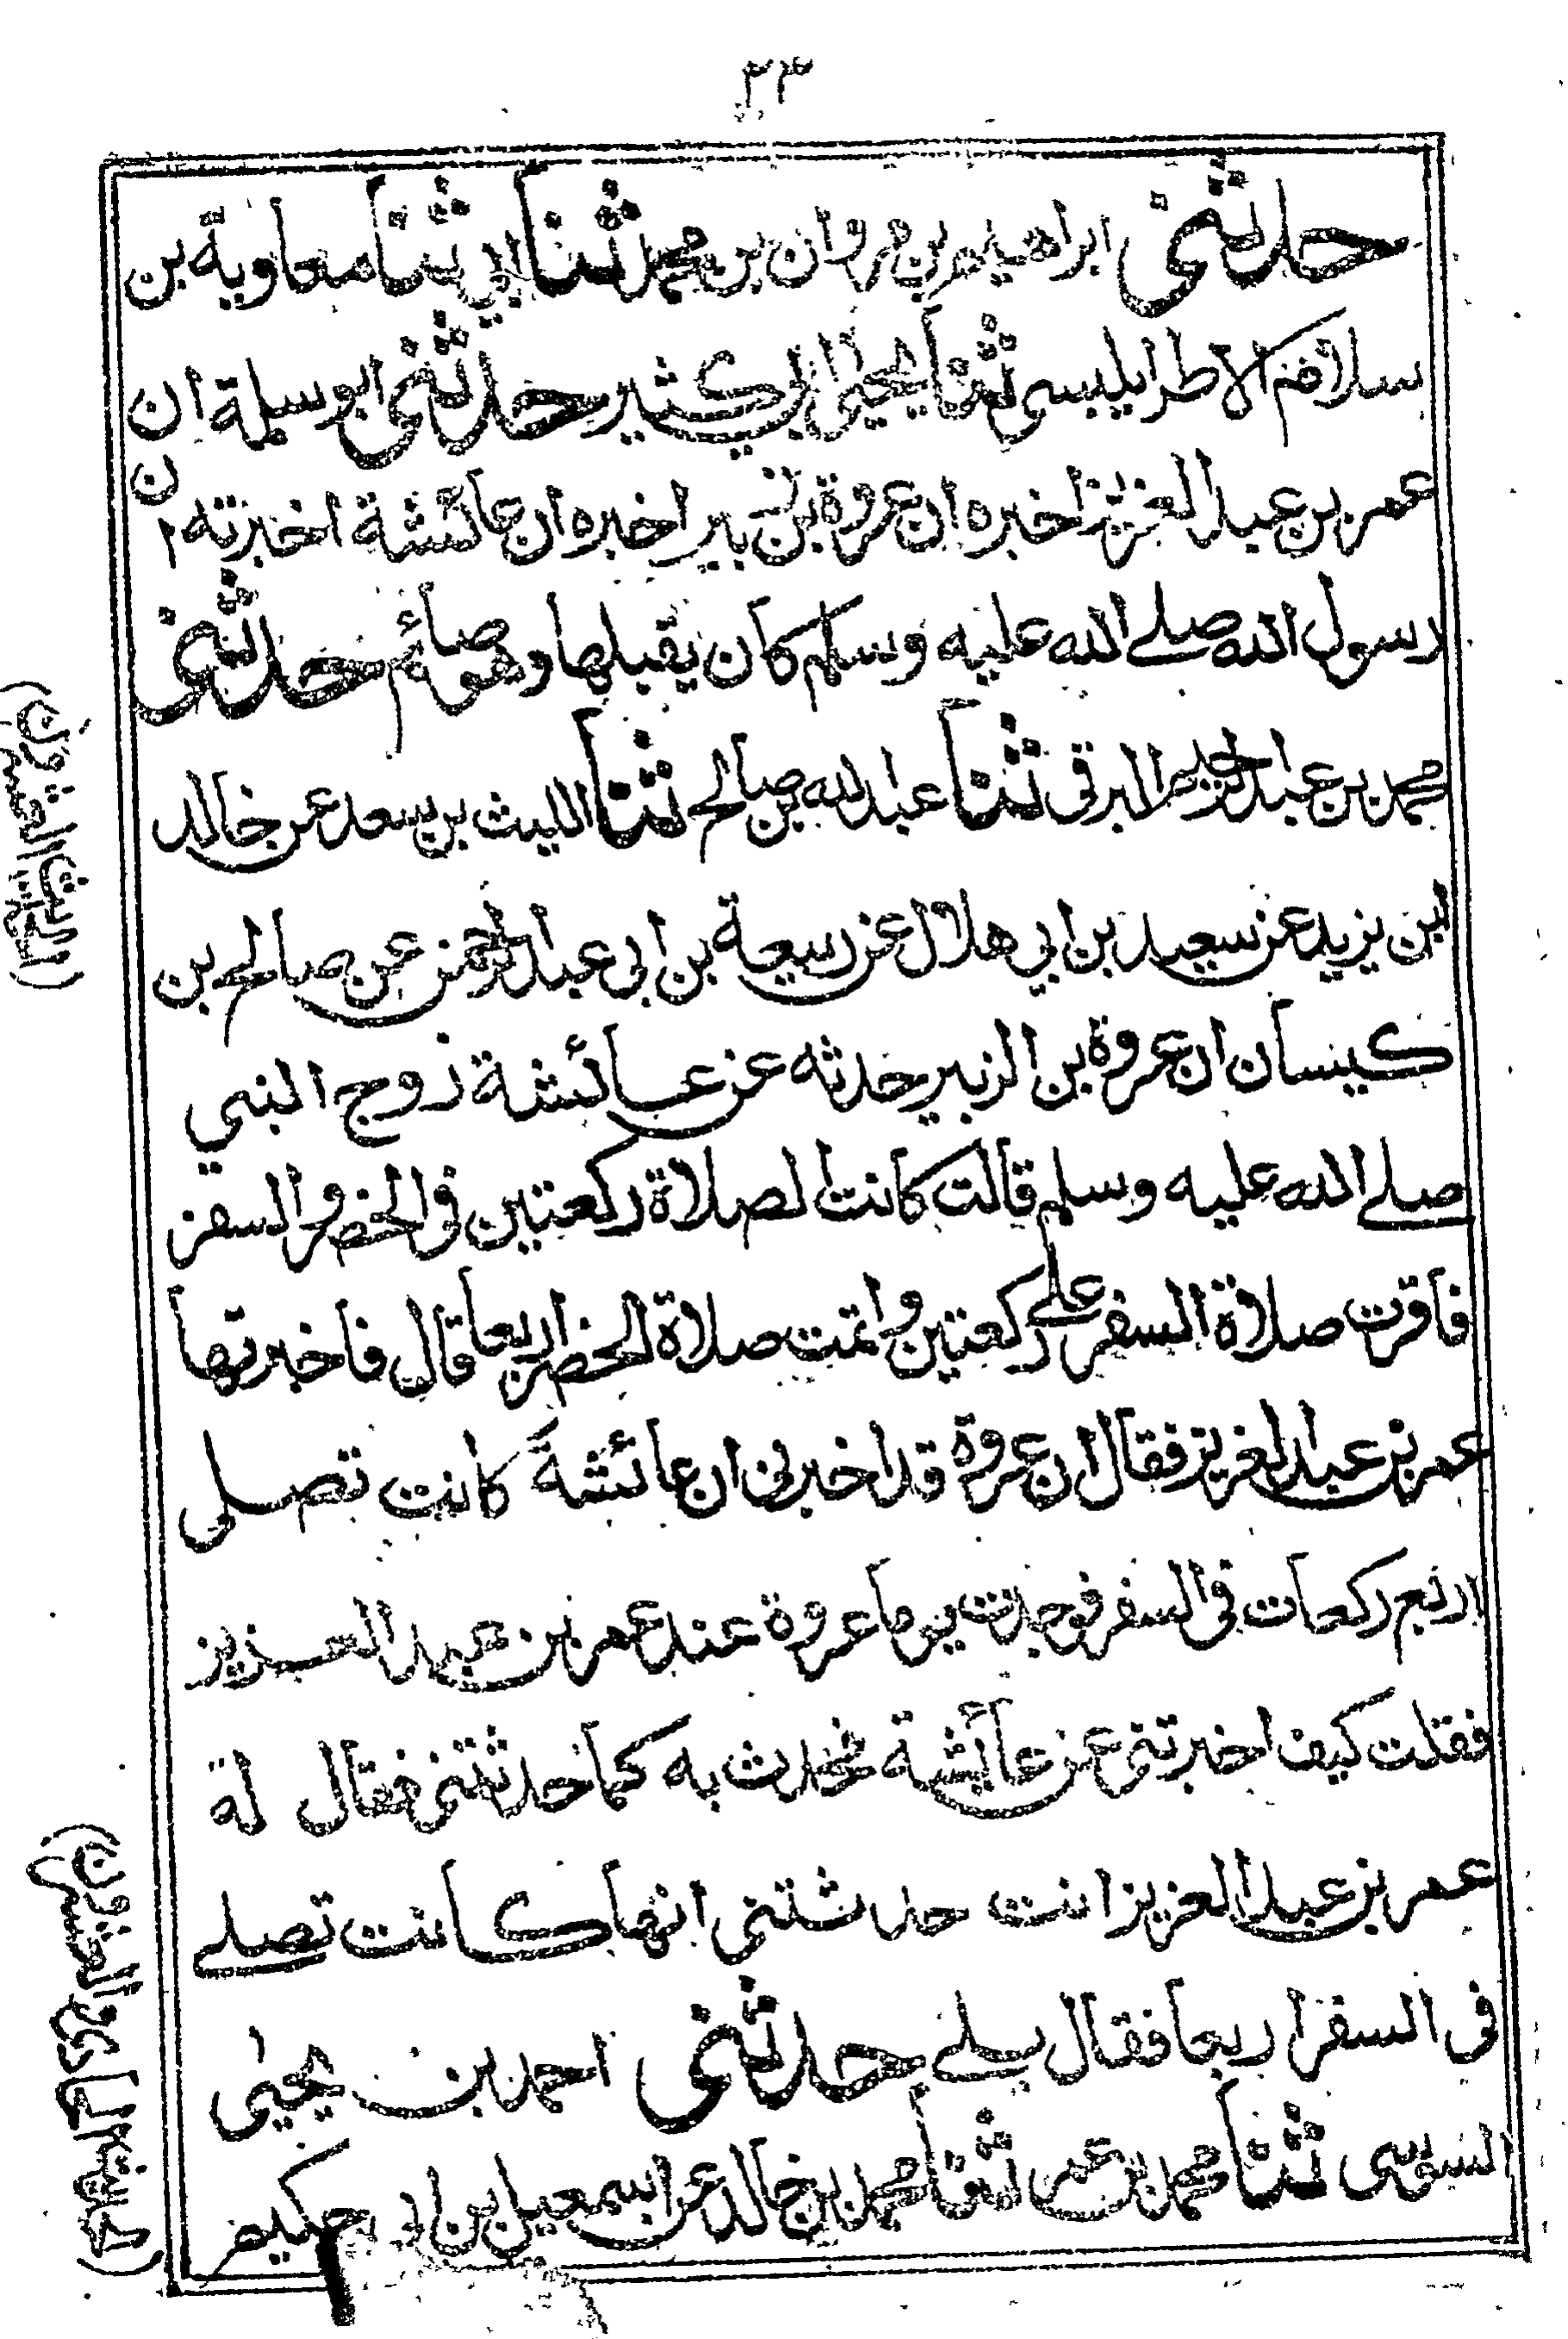 ٣٣
حدثني ابراهيم بن مروان بن محمد ثنا ابي ثنا معاوية بن
سلام الاطرابلسي ثنا يحيى ابن ابي كثير حدثني ابو سلمة ان
عمر بن عبد العزيز اخبره ان عروة بن زبير اخبره ان عائشة اخبرته ان
رسول الله صلى الله عليه وسلم كان يقبلها وهو صائم حدثني
محمد بن عبد الرحيم البرقي ثنا عبد الله بن صالح ثنا الليث بن سعد عن خالد
ابن يزيد عن سعيد بن ابي هلال عن ربيعة بن ابي عبد الرحمن عن صالح بن
كيسان ان عروة بن الزبير حدثه عن عائشة زوج النبي
صلى الله عليه وسلم قالت كانت الصلاة ركعتين في الحضر والسفر
فاقرت صلاة السفر على ركعتين واتمت صلاة الحضر اربعا قال فاخبرتها
عمر بن عبد العزيز فقال ان عروة قد اخبرني ان عائشة كانت تصلي
اربع ركعات في السفر فوجدت يوما عروة عند عمر بن عبد العزيز
فقلت كيف اخبرتني عن عائشة فحدث به كما حدثتني فقال له
عمر بن عبد العزيز انت حدثتني انها كانت تصلي
في السفر اربعا فقال بلى حدثني احمد بن يحيى
السوسي ثنا محمد بن عمر ثنا محمد بن خالد عن اسمعيل بن ابي حكيم
(الحديث العشرون)
(الحديث الحادي والعشرون)